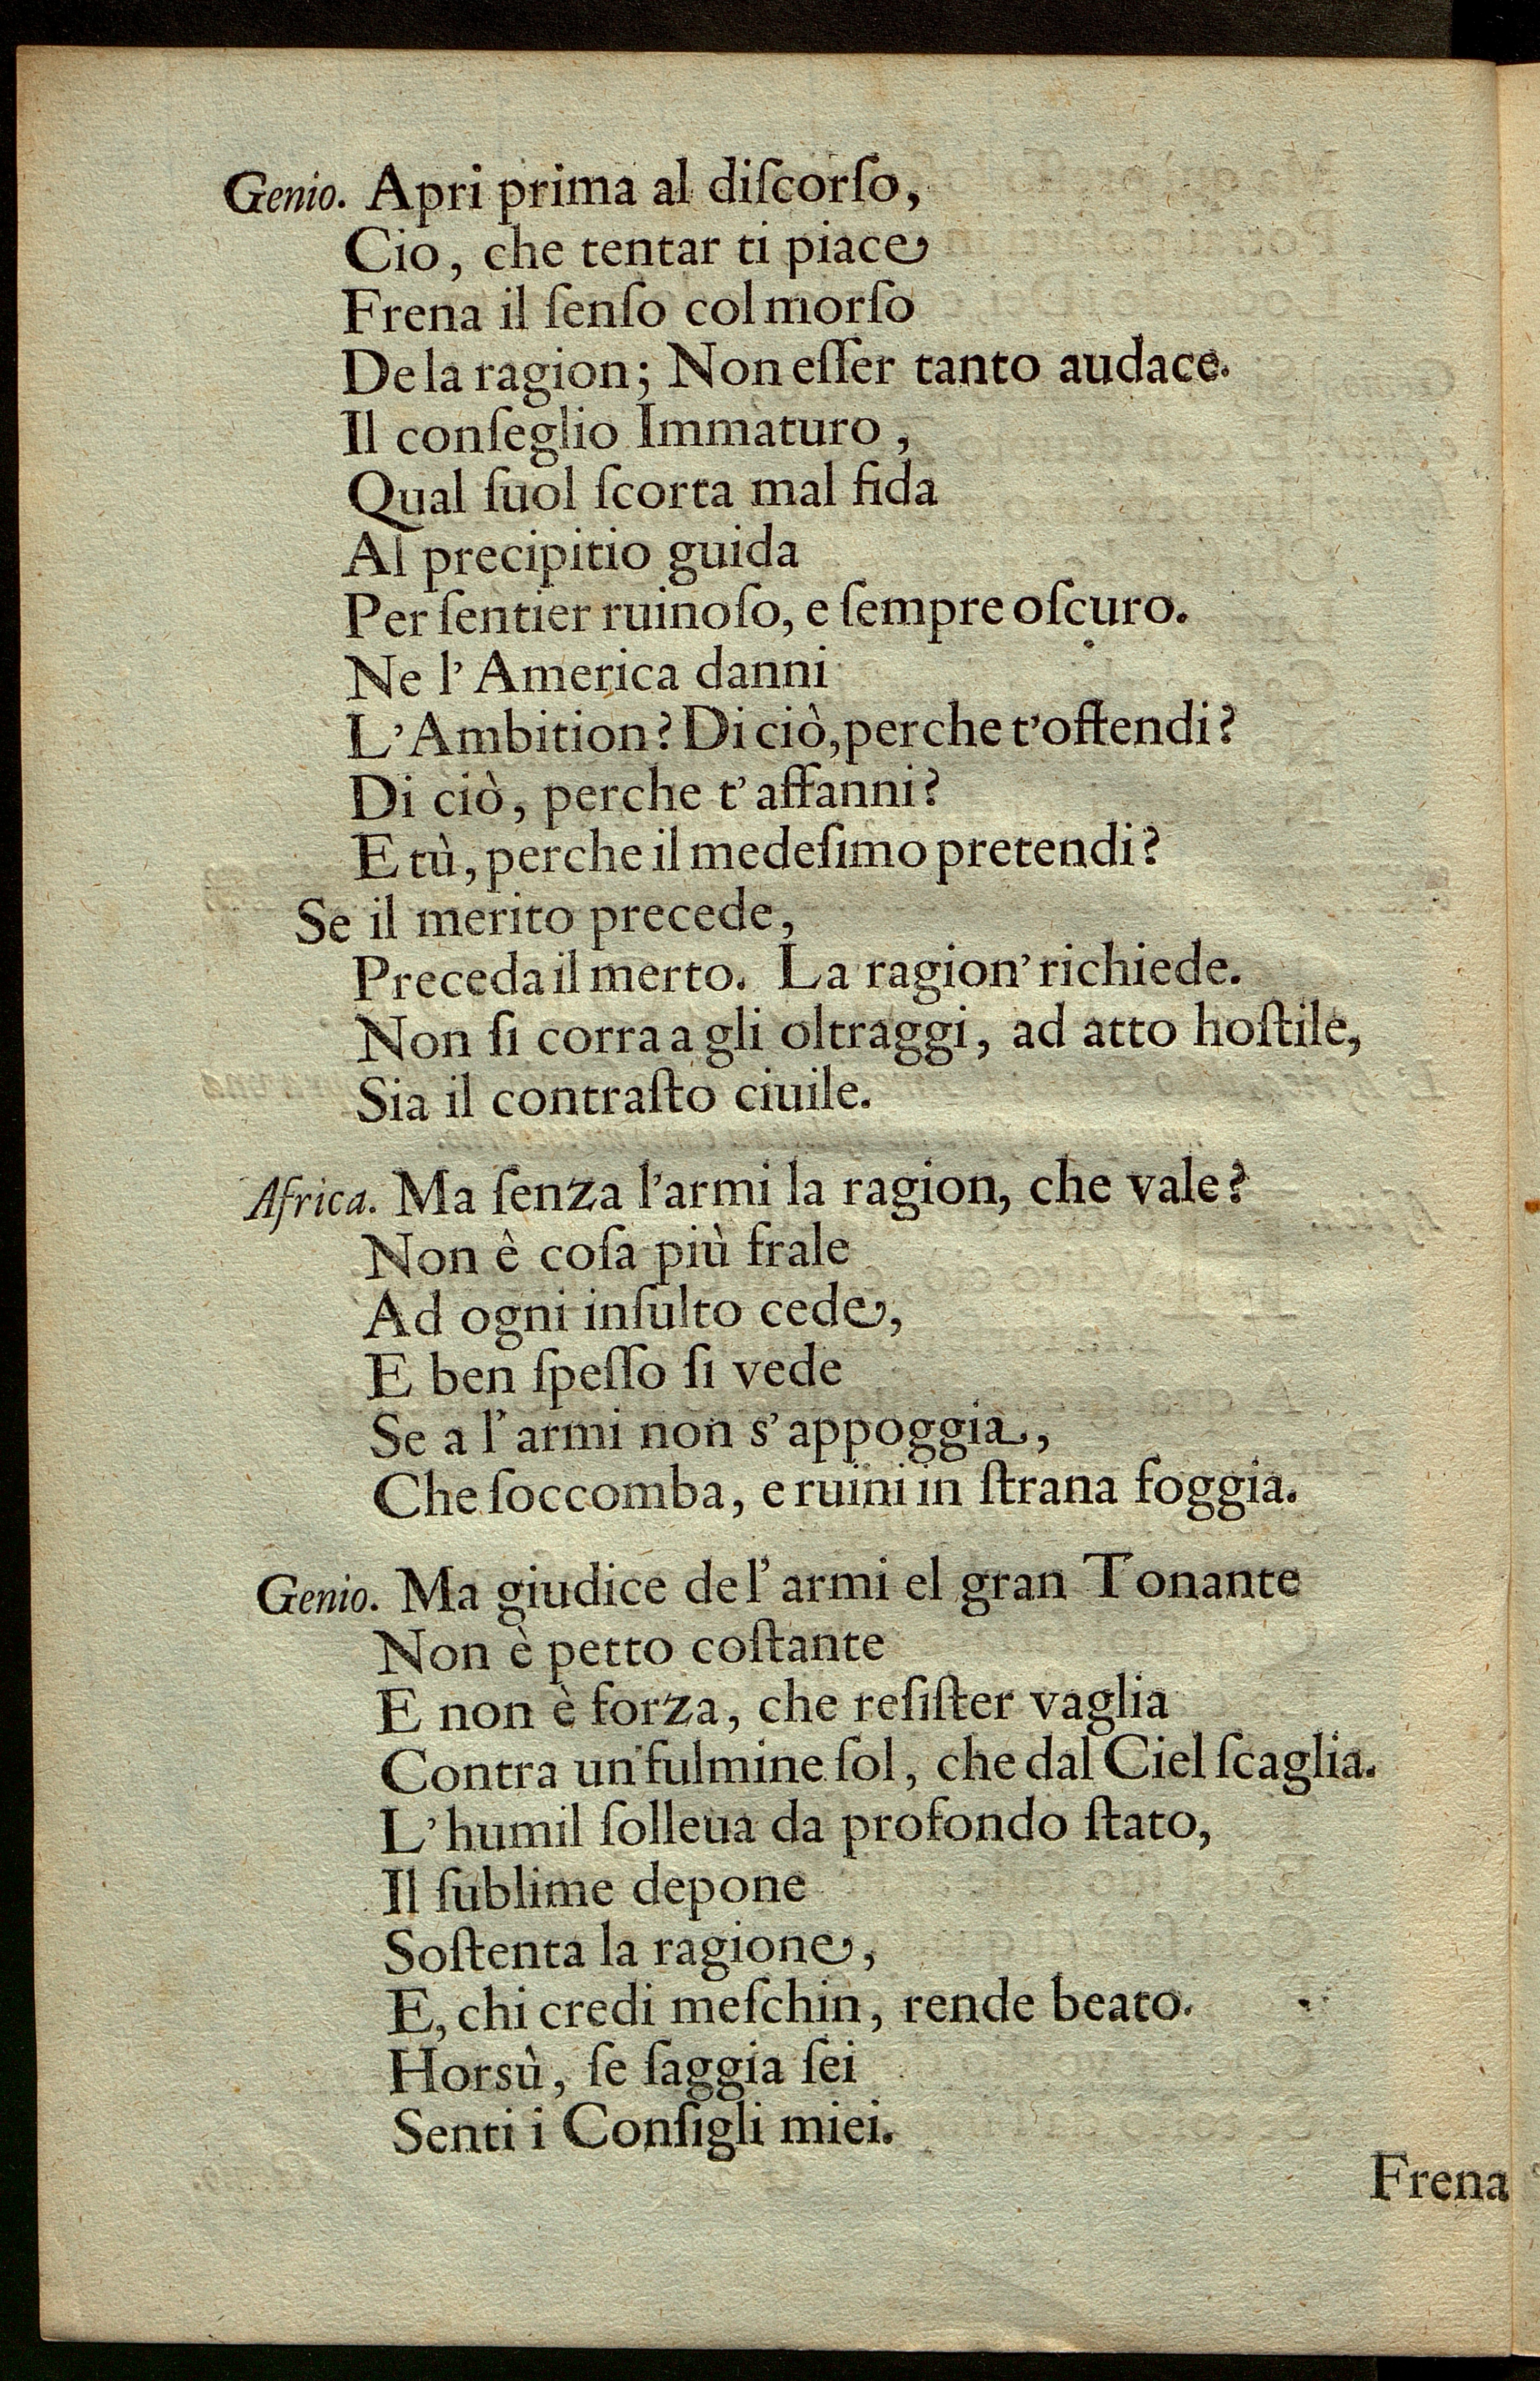 Genio. Apri prima al diſcorſo,
Cio, che tentar ti piace
Frena il ſenſo col morſo
De la ragion; Non eſſer tanto audace.
Il conſeglio Immaturo,
Qual ſuol ſcorta mal fida
Al precipitio guida
Per ſentier ruinoſo, e ſempre oſcuro.
Ne l'America danni
L'Ambition? Di ciò, perche t'offendi?
Di ciò, perche t'affanni?
E tù, perche il medeſimo pretendi?
Se il merito precede,
Preceda il merto. La ragion' richiede.
Non ſi corra a gli oltraggi, ad atto hoſtile,
Sia il contraſto ciuile.
Africa. Ma ſenza l'armi la ragion, che vale?
Non ê coſa più frale
Ad ogni inſulto cede,
E ben ſpeſſo ſi vede
Se a l'armi non s'appoggia,
Che ſoccomba, e ruini in ſtrana foggia.
Genio. Ma giudice de l'armi el gran Tonante
Non è petto coſtante
E non è forza, che reſiſter vaglia
Contra un'fulmine ſol, che dal Ciel ſcaglia.
L'humil ſolleua da profondo ſtato,
Il ſublime depone
Soſtenta la ragione,
E, chi credi meſchin, rende beato.
Horsù, ſe ſaggia ſei
Senti i Conſigli miei.
Frena